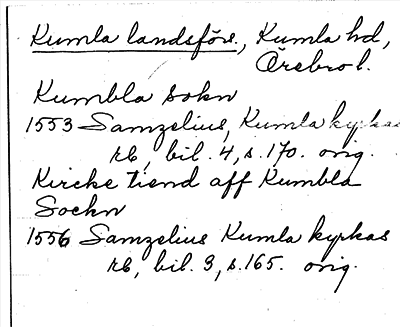 Kumla landsförs., Kumla hd,
Örebro l.
Kumbla Sokn
1553 Samzelius, Kumla kyrkas
rb, bil. 4, s. 170. orig.
Kircke tiend aff Kumbla
Sochn
1556 Samzelius Kumla kyrkas
rb, bil. 3, s. 165. orig.